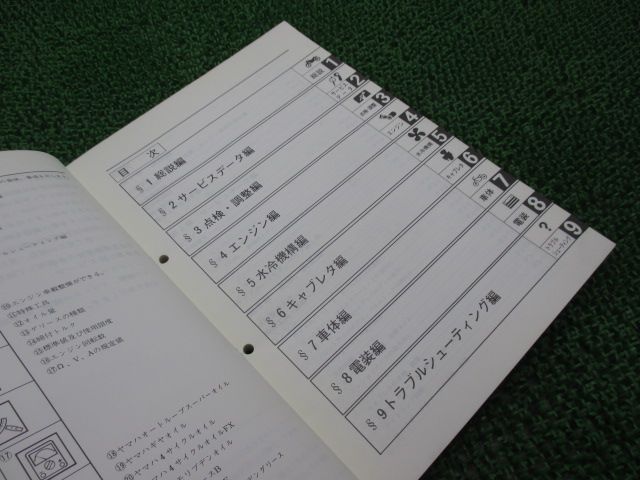 目次
§1 総説編
§2 サービスデータ編
§3 点検・調整編
§4 エンジン編
§5 水冷機構編
§6 キャブレタ編
§7 車体編
§8 電装編
§9 トラブルシューティング編
1
総説
2
サービスデータ
3
点検・調整
4
エンジン
5
水冷機構
6
キャブレタ
7
車体
8
電装
9
?
トラブルシューティング
⑩エンジン車載整備ができる。
⑪特殊工具
⑫オイル量
⑬グリースの種類
⑭締付トルク
⑮標準値及び使用限度
⑯エンジン回転数
⑰Ω、V、Aの規定値
⑰
⑱ヤマハオートルーブスーパーオイル
⑲ヤマハギヤオイル
⑳ヤマハ4サイクルオイル